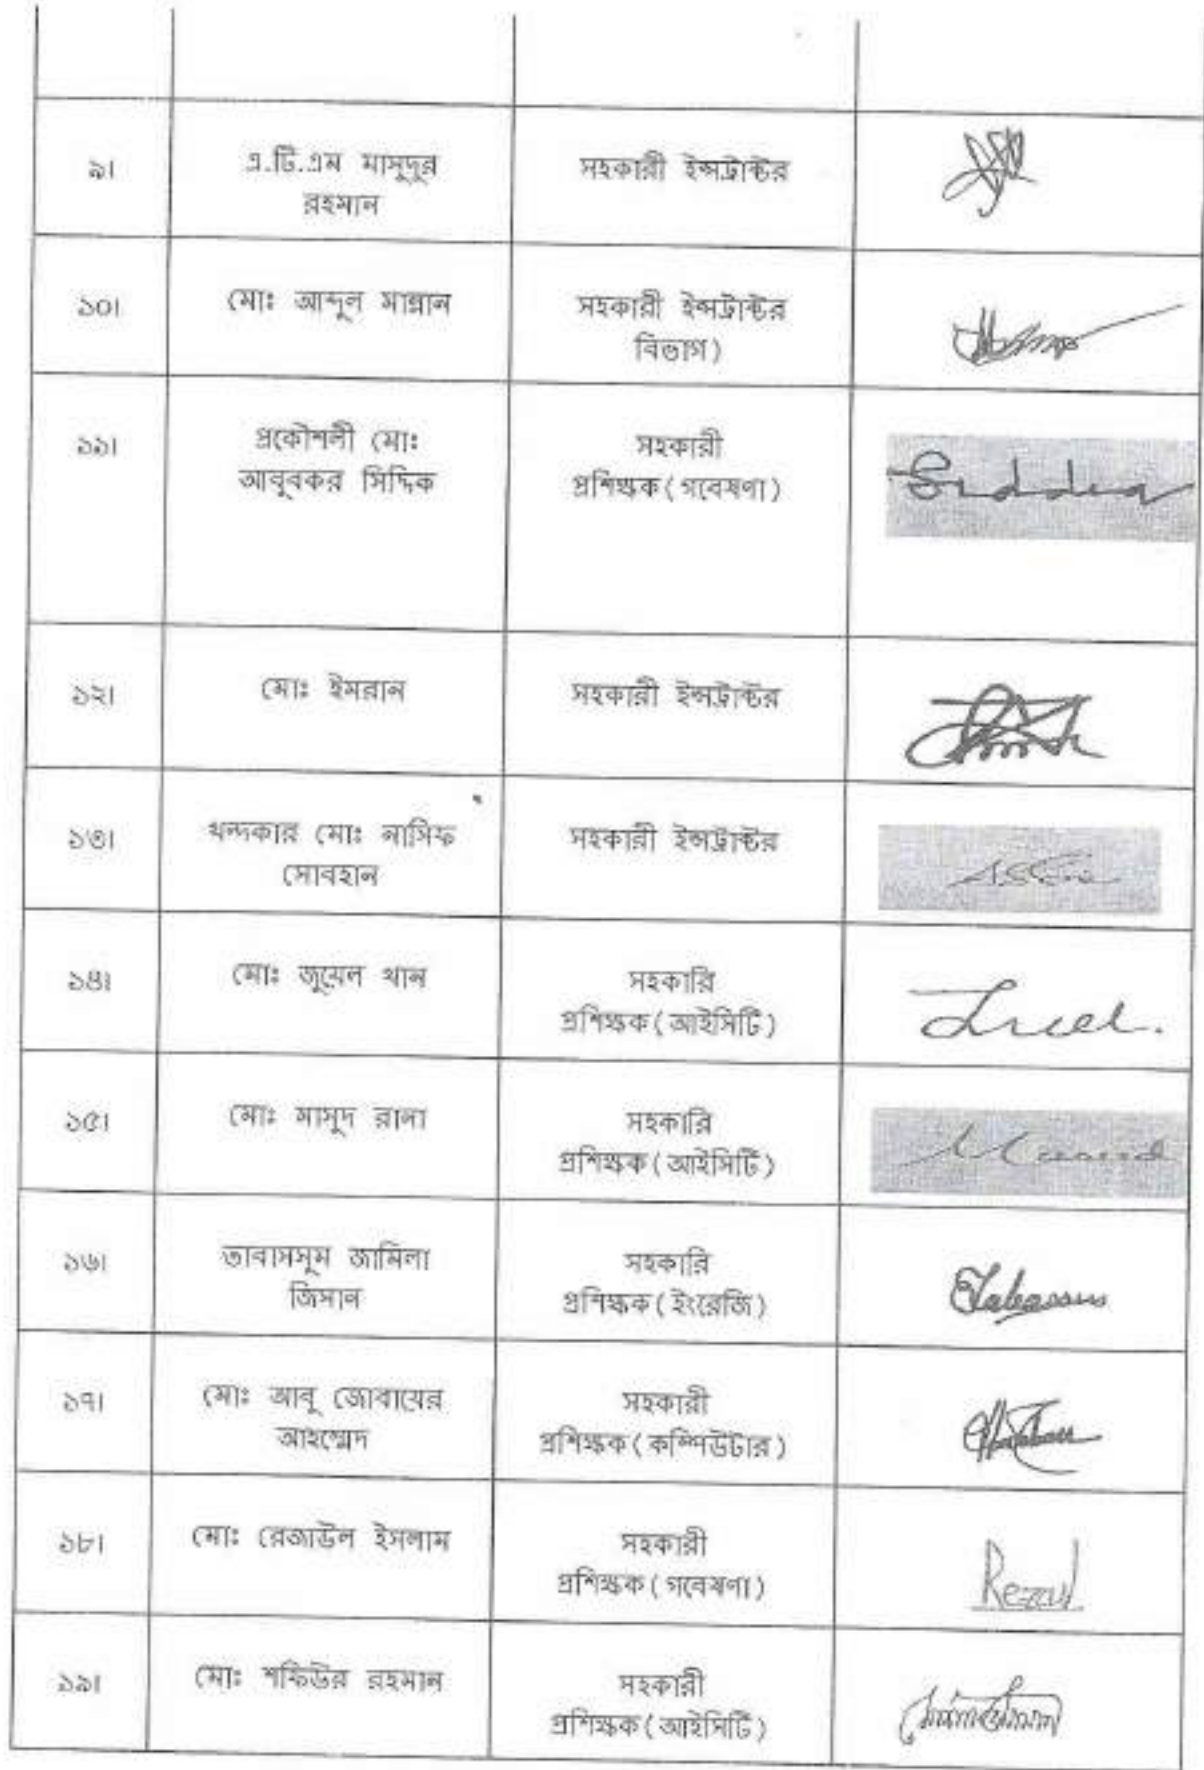 ৯। এ.টি.এম মাসুদুর সহকারী ইন্সট্রাক্টর
রহমান
১০। মোঃ আব্দুল মান্নান সহকারী ইন্সট্রাক্টর
বিভাগ)
১১। প্রকৌশলী মোঃ সহকারী
আবুবকর সিদ্দিক প্রশিক্ষক(গবেষণা)
১২। মোঃ ইমরান সহকারী ইন্সট্রাক্টর
১৩। খন্দকার মোঃ নাসিফ সহকারী ইন্সট্রাক্টর
সোবহান
১৪। মোঃ জুয়েল খান সহকারি
প্রশিক্ষক(আইসিটি)
Juel.
১৫। মোঃ মাসুদ রানা সহকারি
প্রশিক্ষক(আইসিটি)
Masud
১৬। তাবাসসুম জামিলা সহকারি
জিসান প্রশিক্ষক(ইংরেজি)
Tabassum
১৭। মোঃ আবু জোবায়ের সহকারী
আহম্মেদ প্রশিক্ষক(কম্পিউটার)
১৮। মোঃ রেজাউল ইসলাম সহকারী
প্রশিক্ষক(গবেষণা)
Rezaul
১৯। মোঃ শফিউর রহমান সহকারী
প্রশিক্ষক(আইসিটি)